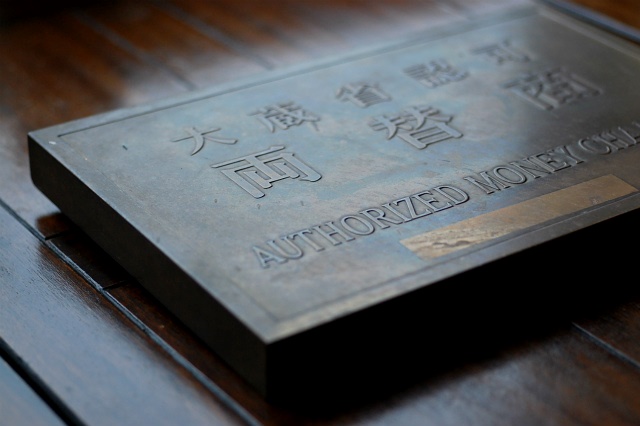 大蔵省認可
両替商
AUTHORIZED MONEY